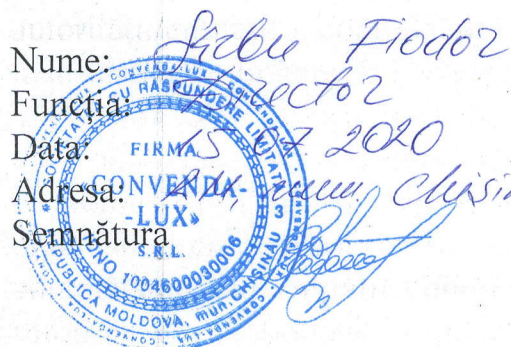 Nume: Sîrbu Fiodor
Funcția: Director
Data: 15 07 2020
Adresa: mun. Chișin
Semnătura
SOCIETATEA CU RĂSPUNDERE LIMITATĂ
FIRMA
«CONVENDA-
-LUX»
S.R.L.
IDNO 1004600030006
REPUBLICA MOLDOVA, mun. CHIȘINĂU
3
CONVENDA-LUX